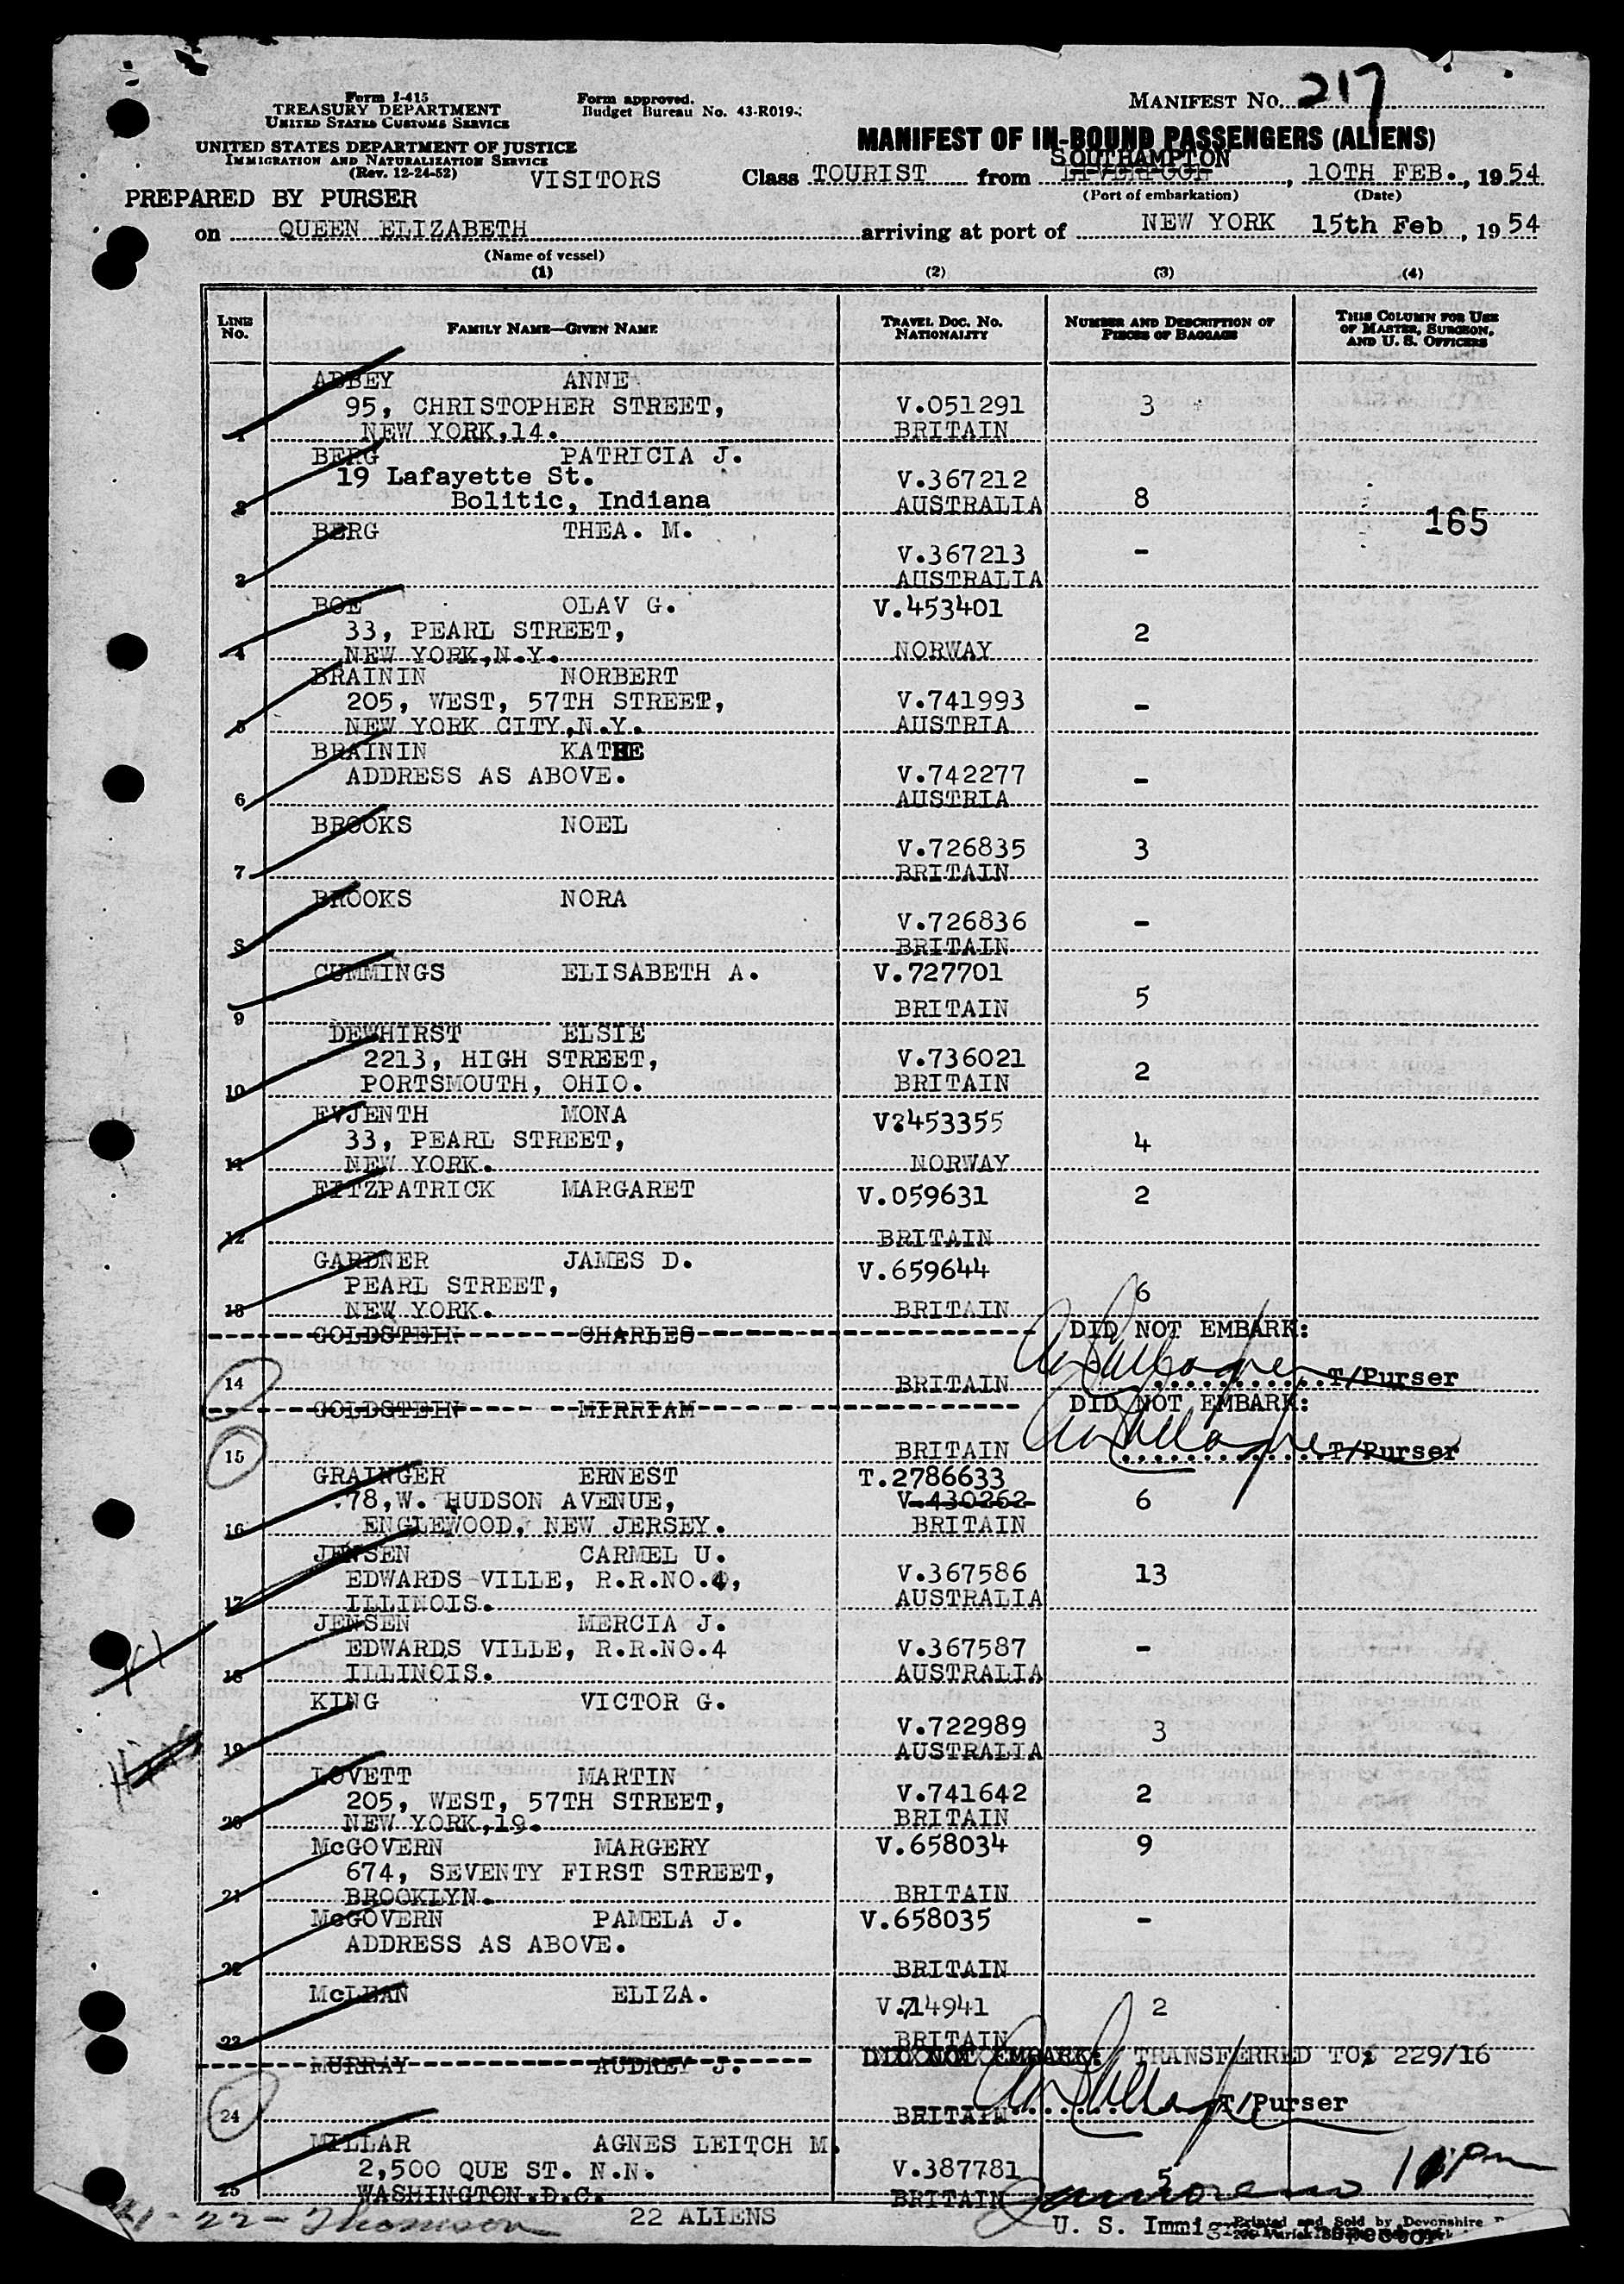 Form I-415
TREASURY DEPARTMENT
UNITED STATES CUSTOMS SERVICE
UNITED STATES DEPARTMENT OF JUSTICE
IMMIGRATION AND NATURALIZATION SERVICE
(Rev. 12-24-52)
Form approved.
Budget Bureau No. 43-R019-
MANIFEST NO. 217
MANIFEST OF IN-BOUND PASSENGERS (ALIENS)
VISITORS
SOUTHAMPTON
Class TOURIST from LIVERPOOL, 10TH FEB., 1954
(Port of embarkation) (Date)
PREPARED BY PURSER
on QUEEN ELIZABETH arriving at port of NEW YORK 15th Feb, 1954
(Name of vessel)
(1) (2) (3) (4)
LINE NO. FAMILY NAME—GIVEN NAME TRAVEL DOC. NO. NATIONALITY NUMBER AND DESCRIPTION OF PIECES OF BAGGAGE THIS COLUMN FOR USE OF MASTER, SURGEON, AND U. S. OFFICERS
ABBEY ANNE
95, CHRISTOPHER STREET, V.051291 3
NEW YORK,14. BRITAIN
BERG PATRICIA J.
19 Lafayette St. V.367212
2 Bolitic, Indiana AUSTRALIA 8
BERG THEA. M. 165
V.367213 -
AUSTRALIA
BOE OLAV G. V.453401
33, PEARL STREET, 2
4 NEW YORK,N.Y. NORWAY
BRAININ NORBERT
205, WEST, 57TH STREET, V.741993 -
5 NEW YORK CITY,N.Y. AUSTRIA
BRAININ KATHE
ADDRESS AS ABOVE. V.742277 -
6 AUSTRIA
BROOKS NOEL
V.726835 3
7 BRITAIN
BROOKS NORA
V.726836 -
8 BRITAIN
CUMMINGS ELISABETH A. V.727701
BRITAIN 5
9
DEWHIRST ELSIE
2213, HIGH STREET, V.736021 2
10 PORTSMOUTH, OHIO. BRITAIN
EVJENTH MONA V?453355
33, PEARL STREET, 4
11 NEW YORK. NORWAY
FITZPATRICK MARGARET V.059631 2
12 BRITAIN
GARDNER JAMES D. V.659644
PEARL STREET, 6
13 NEW YORK. BRITAIN
GOLDSTEIN CHARLES DID NOT EMBARK:
14 BRITAIN T/Purser
GOLDSTEIN MIRRIAM DID NOT EMBARK:
15 BRITAIN T/Purser
GRAINGER ERNEST T.2786633
78,W. HUDSON AVENUE, V.430262 6
16 ENGLEWOOD, NEW JERSEY. BRITAIN
JENSEN CARMEL U.
EDWARDS VILLE, R.R.NO.4, V.367586 13
17 ILLINOIS. AUSTRALIA
JENSEN MERCIA J.
EDWARDS VILLE, R.R.NO.4 V.367587 -
18 ILLINOIS. AUSTRALIA
KING VICTOR G.
V.722989 3
19 AUSTRALIA
LOVETT MARTIN
205, WEST, 57TH STREET, V.741642 2
20 NEW YORK,19. BRITAIN
McGOVERN MARGERY V.658034 9
674, SEVENTY FIRST STREET,
21 BROOKLYN. BRITAIN
McGOVERN PAMELA J. V.658035 -
ADDRESS AS ABOVE.
22 BRITAIN
McLEAN ELIZA. V.714941 2
23 BRITAIN
MURRAY AUDREY J. DID NOT EMBARK: TRANSFERRED TO: 229/16
24 BRITAIN T/Purser
MILLAR AGNES LEITCH M.
2,500 QUE ST. N.N. V.387781 5
25 WASHINGTON.D.C. BRITAIN
22 ALIENS
U. S. Immigrant Inspector
Printed and Sold by Devonshire